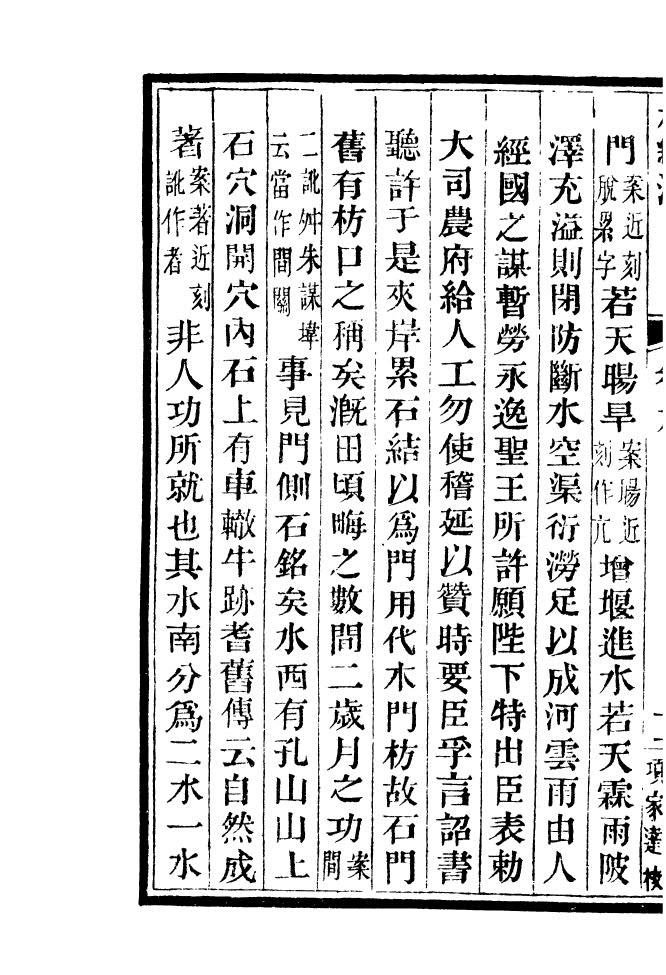 項家達校
門案近刻脫累字若天暘旱案暘近刻作亢增堰進水若天霖雨陂
澤充溢則閉防斷水空渠衍澇足以成河雲雨由人
經國之謀暫勞永逸聖王所許願陛下特出臣表勅
大司農府給人工勿使稽延以贊時要臣孚言詔書
聽許于是夾岸累石結以爲門用代木門枋故石門
舊有枋口之稱矣溉田頃畮之數間二歲月之功案間
二訛舛朱謀㙔云當作間關事見門側石銘矣水西有孔山山上
石穴洞開穴內石上有車轍牛跡耆舊傳云自然成
著案著近刻訛作者非人功所就也其水南分爲二水一水